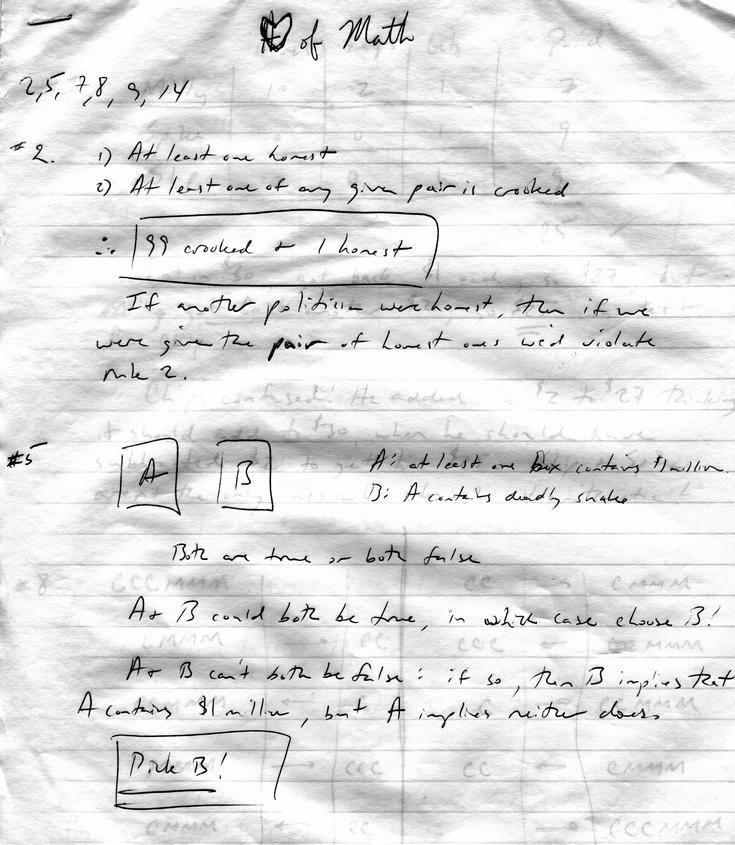 ♡ of Math
2, 5, 7, 8, 9, 14
#2. 1) At least one honest
2) At least one of any given pair is crooked
∴ 99 crooked & 1 honest
If another politician were honest, then if we
were given the pair of honest ones we'd violate
rule 2.
#5 A B A: at least one box contains $1 million.
B: A contains deadly snake
Both are true or both false
A & B could both be true, in which case choose B!
A & B can't both be false: if so, then B implies that
A contains $1 million, but A implies neither does.
Pick B!